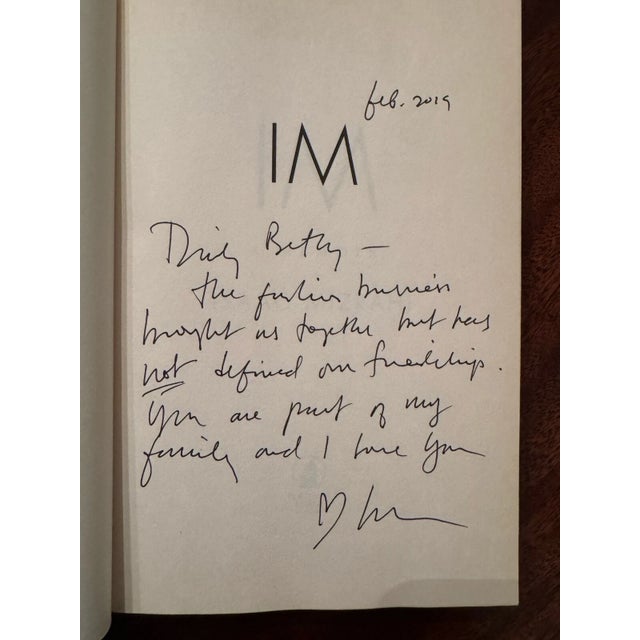 feb. 2019
IM
Betsy —
the fashion business
brought us together but has
not defined our friendship.
You are part of my
family and I love you